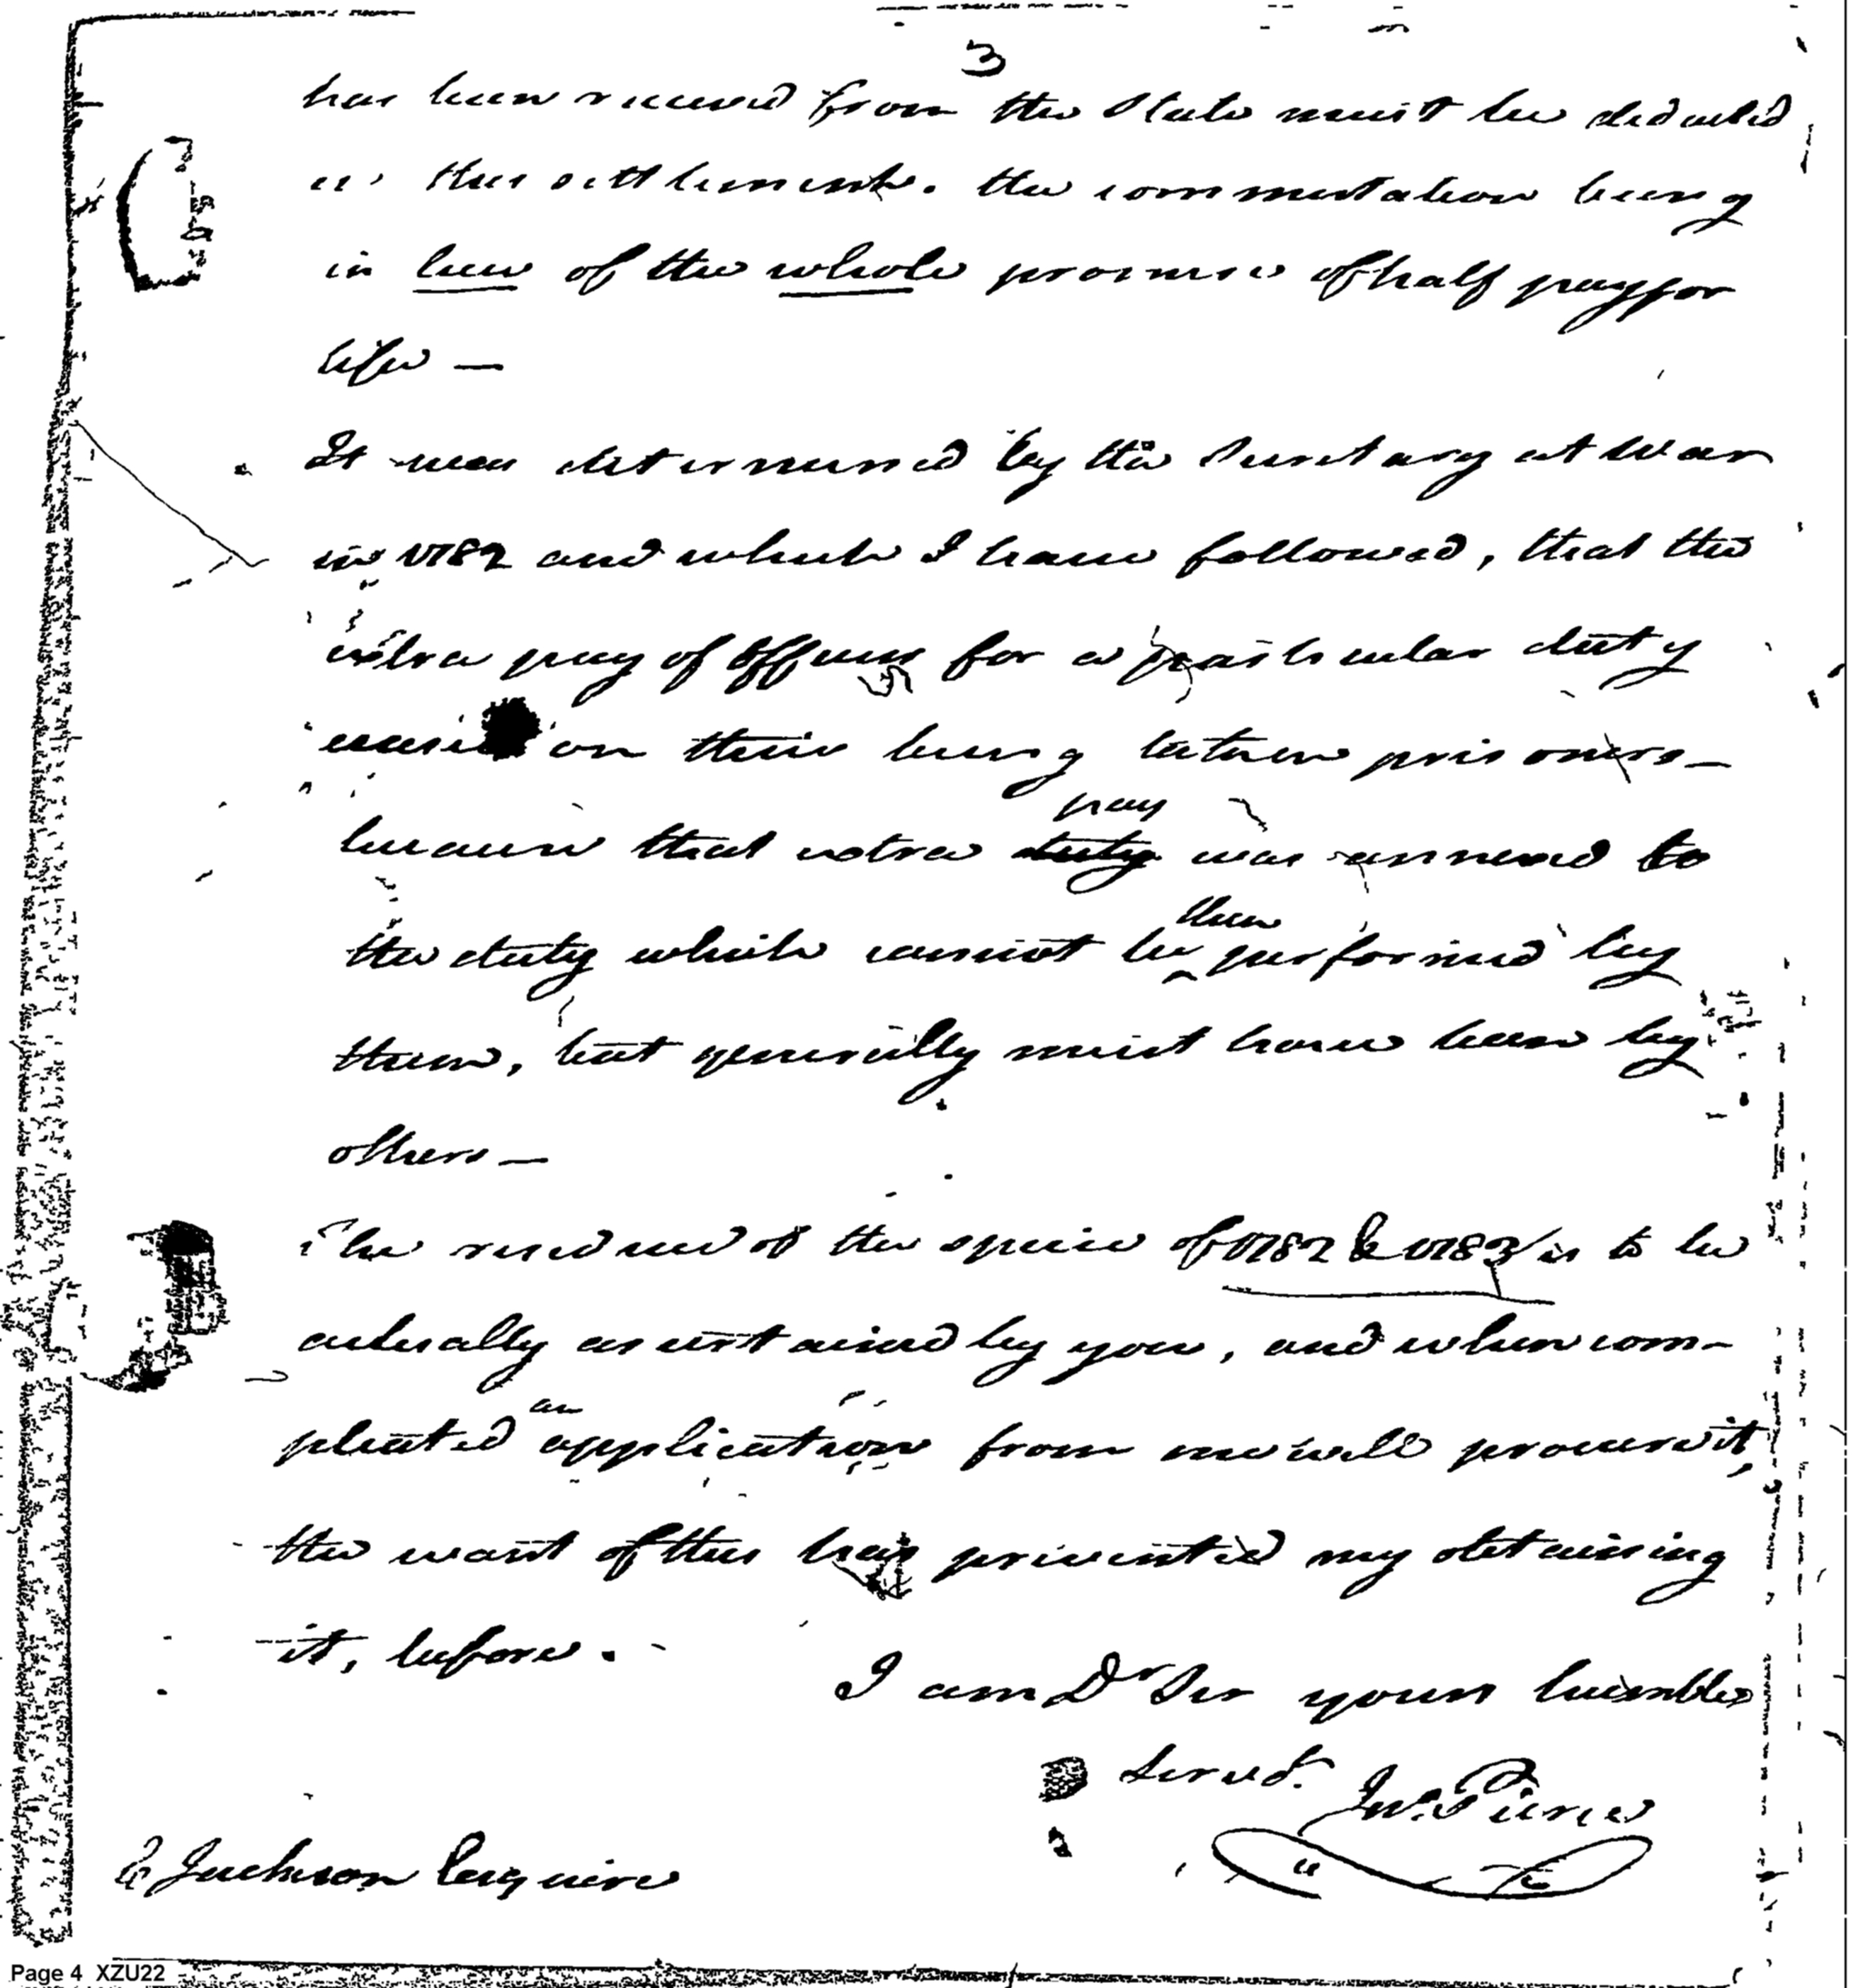 3
has been received from the State must be deducted
in this settlement. the commutation being
in lieu of the whole promise of half pay for
life —
It was determined by the Secretary at War
in 1782 and which I have followed, that the
extra pay of officers for a particular duty
ceases on their being taken prisoners —
pay
because that extra duty was annexed to
then
the duty which cannot be performed by
them, but generally must have been by
others —
The residue of the specie of 1782 & 1783 is to be
actually ascertained by you, and when com-
an
pleated application from me will procure it,
the want of this has prevented my obtaining
it, before.
I am Dr Sir your humble
Servt.
Jno. Pierce
Jackson Esquire
Page 4 XZU22